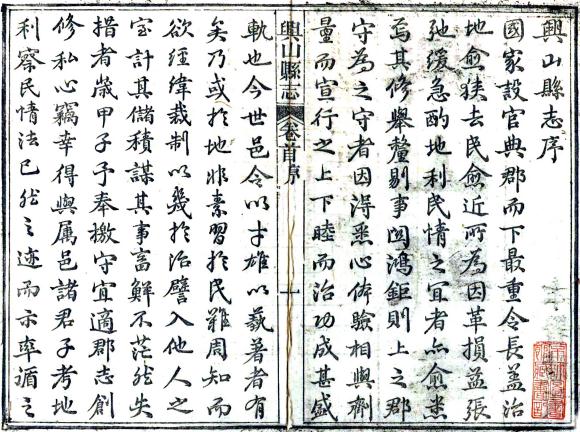 興山縣志序
國家設官典郡而下最重令長蓋治
地愈狹去民愈近所為因革損益張
弛緩急酌地利民情之宜者亦愈悉
焉其修舉釐剔事關鴻鉅則上之郡
守為之守者因得悉心体驗相與劑
量而宣行之上下睦而治功成甚盛
興山縣志 卷首序 一
軌也今世邑令以才雄以著者有
矣乃或於地非素習於民難周知而
欲經緯裁制以幾於治譬入他人之
室計其儲積謀其事畜鮮不茫然失
措者歲甲子予奉檄守宜適郡志創
修私心竊幸得與屬邑諸君子考地
利察民情法已然之迹而示率循之